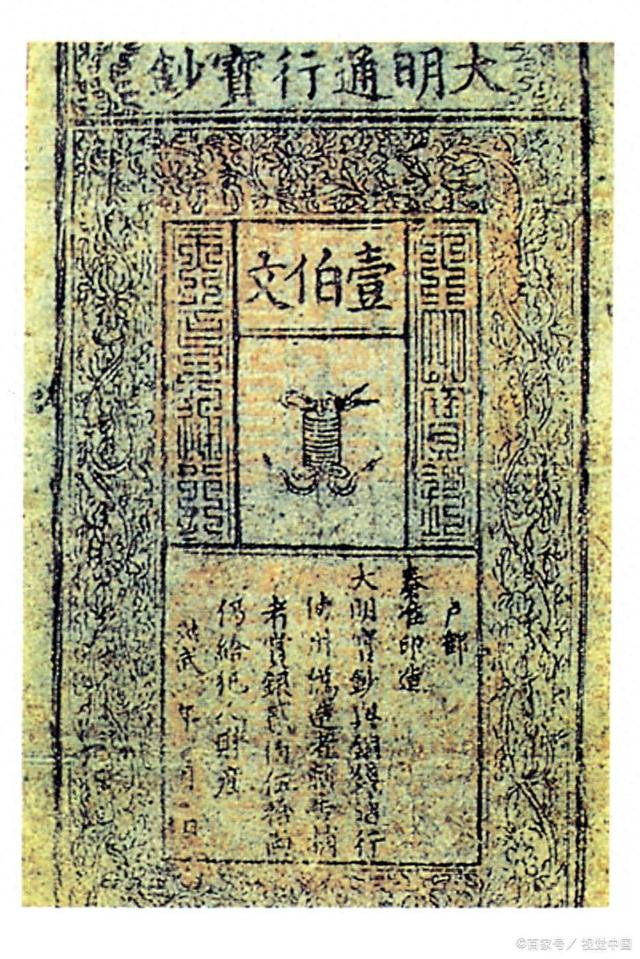 大明通行寶鈔
壹伯文
户部
奏准印造
大明寶鈔與銅錢通行
使用僞造者斬告捕
者賞銀貳伍拾兩
仍給犯人財產
洪武 年 月 日
©百家号／视觉中国